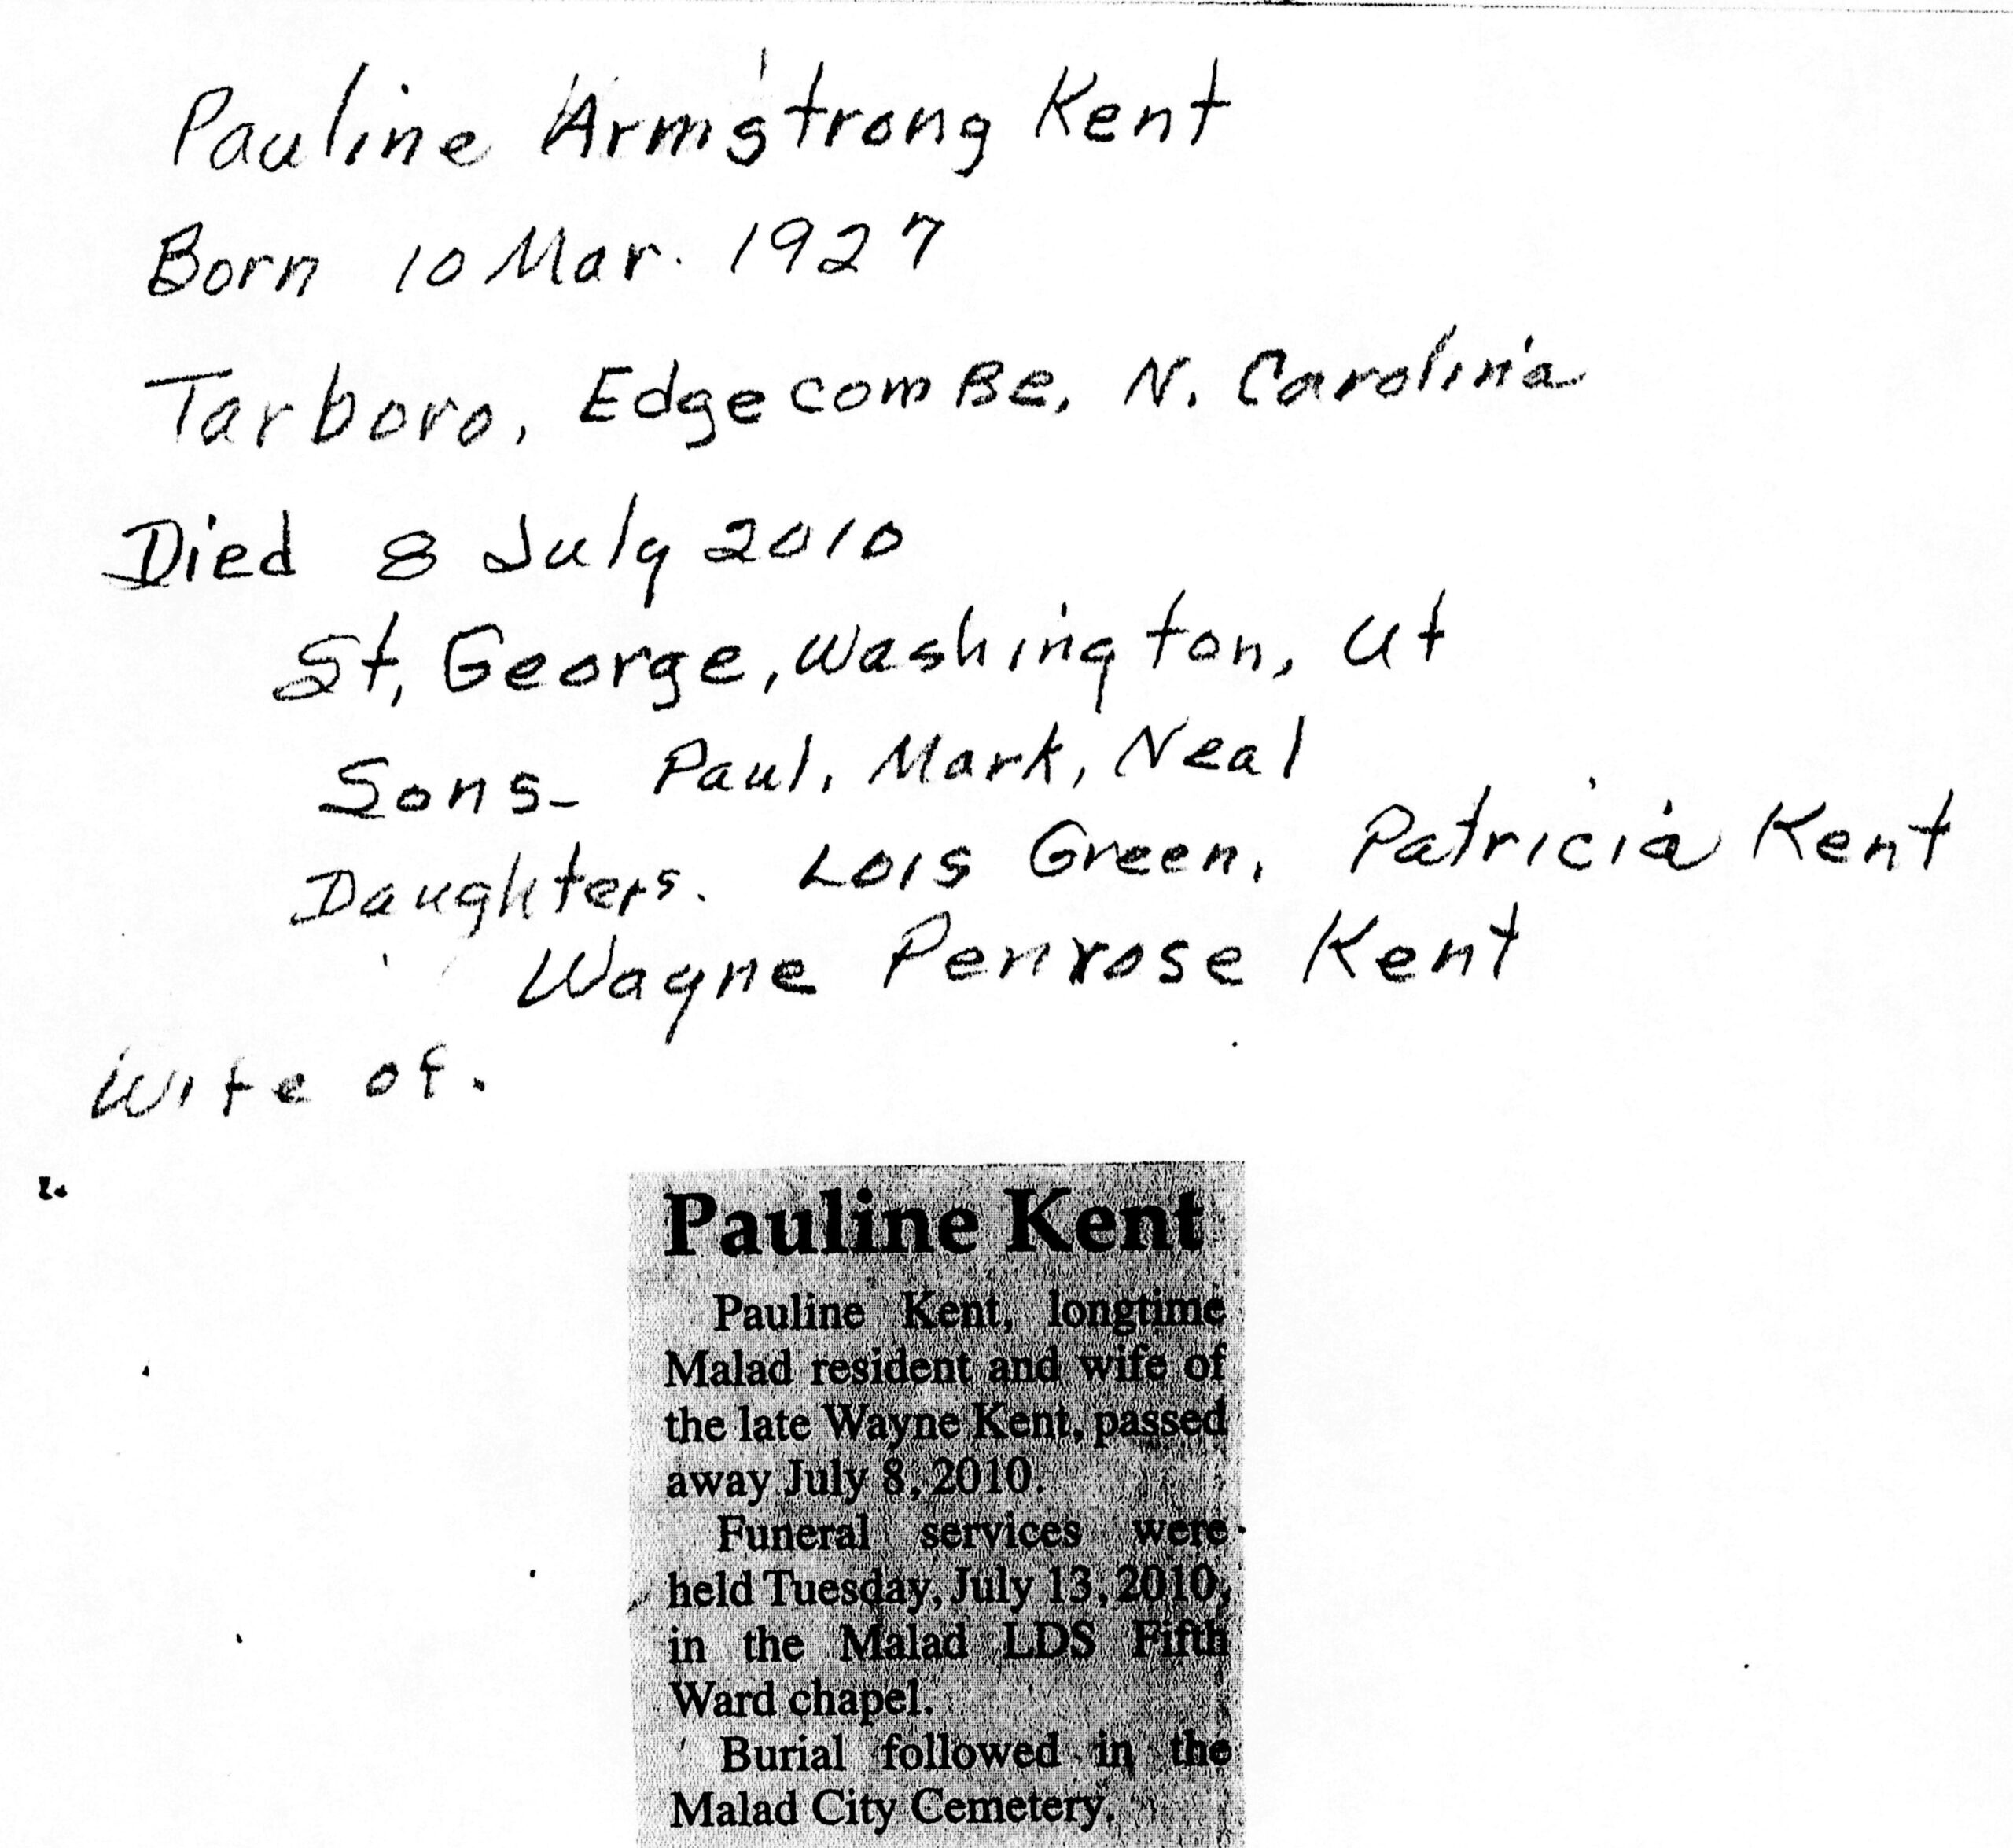 Pauline Armstrong Kent
Born 10 Mar. 1927
Tarboro, EdgecomBe, N. Carolina
Died 8 July 2010
St, George, Washington, Ut
Sons- Paul, Mark, Neal
Daughters. Lois Green, Patricia Kent
Wayne Penrose Kent
Wife of.
Pauline Kent
Pauline Kent, longtime
Malad resident and wife of
the late Wayne Kent, passed
away July 8, 2010.
Funeral services were
held Tuesday, July 13, 2010,
in the Malad LDS Fifth
Ward chapel.
Burial followed in the
Malad City Cemetery.